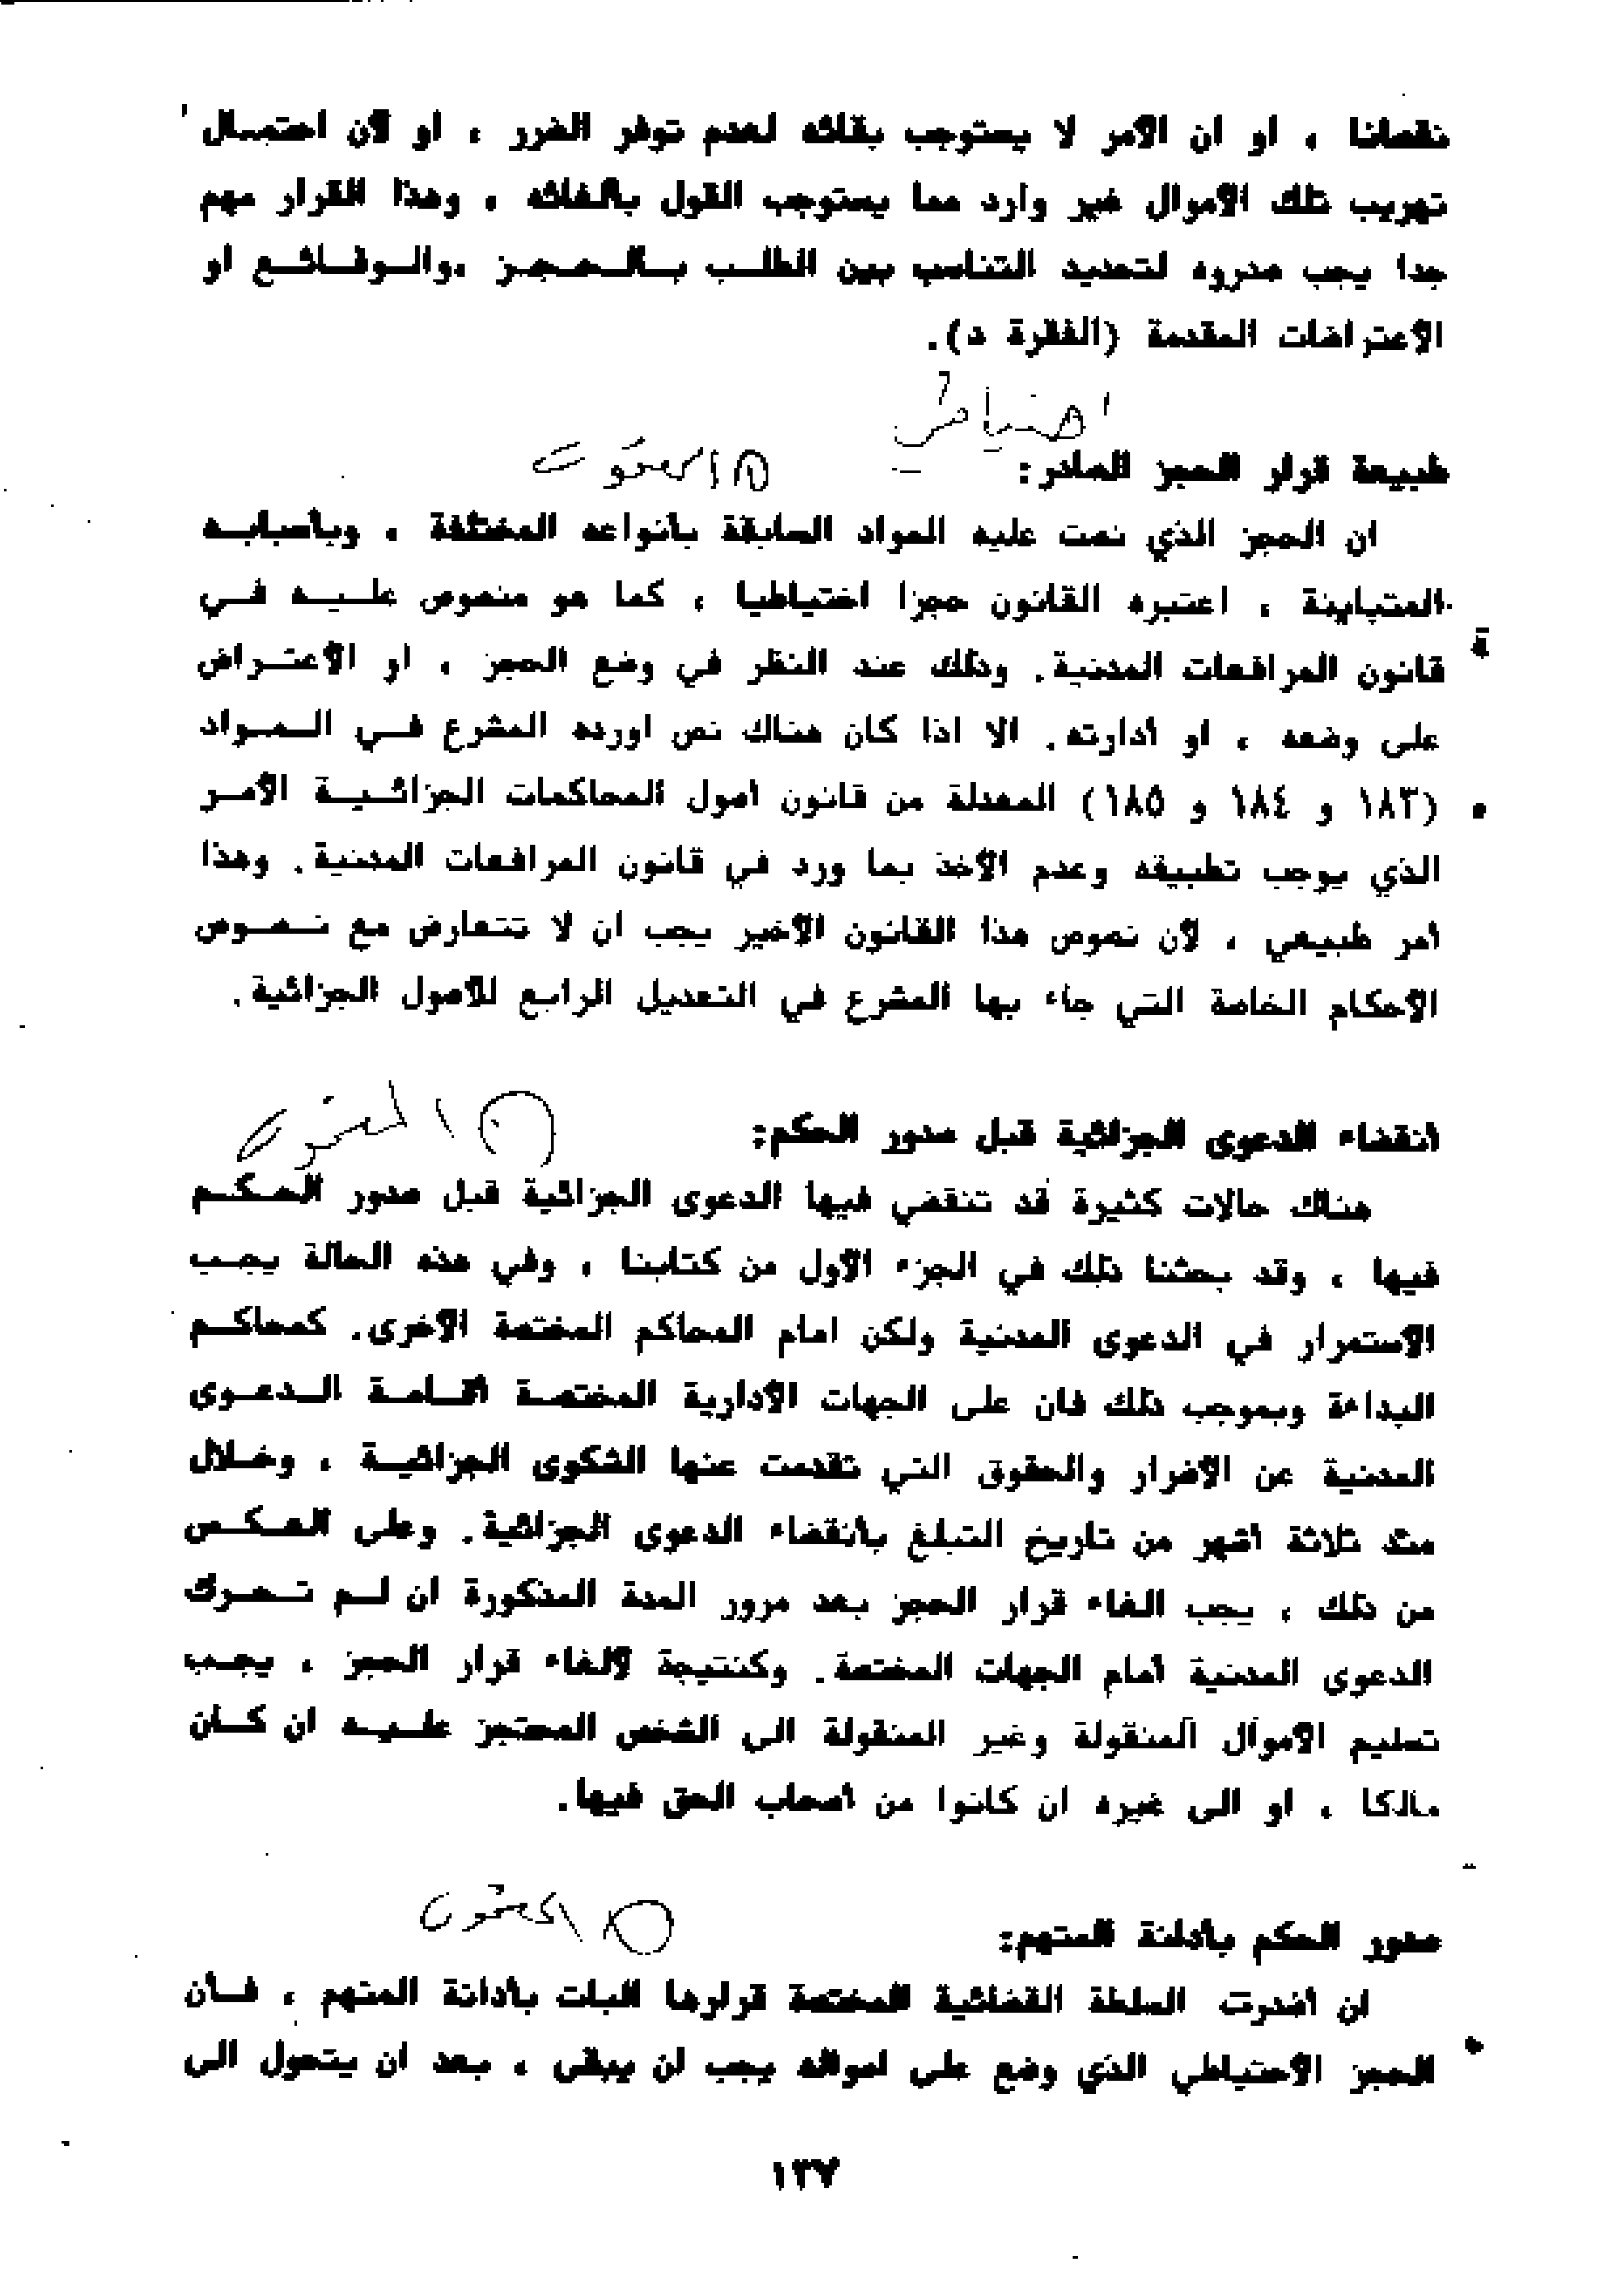 نقصانا ، او ان الامر لا يستوجب بقائه لعدم توفر الضرر ، او لأن احتمال
تهريب تلك الأموال غير وارد مما يستوجب القول بألغائه ، وهذا القرار مهم
جدا يجب صدروه لتحديد التناسب بين الطلب بالحجز ،والوقائع او
الأعتراضات المقدمة (الفقرة د).
احتياطي
طبيعة قرار الحجز الصادر:
ان الحجز الذي نصت عليه المواد السابقة بأنواعه المختلفة ، وبأسبابه
المتباينة ، اعتبره القانون حجزا احتياطيا ، كما هو منصوص عليه في
قانون المرافعات المدنية. وذلك عند النظر في وضع الحجز ، او الأعتراض
على وضعه ، او أدارته. الا اذا كان هناك نص اورده المشرع في المواد
(١٨٣ و ١٨٤ و ١٨٥) المعدلة من قانون اصول المحاكمات الجزائية الأمر
الذي يوجب تطبيقه وعدم الأخذ بما ورد في قانون المرافعات المدنية. وهذا
امر طبيعي ، لأن نصوص هذا القانون الأخير يجب ان لا تتعارض مع نصوص
الأحكام الخاصة التي جاء بها المشرع في التعديل الرابع للأصول الجزائية.
أنقضاء الدعوى الجزائية قبل صدور الحكم:
هناك حالات كثيرة قد تنقضي فيها الدعوى الجزائية قبل صدور الحكم
فيها ، وقد بحثنا ذلك في الجزء الأول من كتابنا ، وفي هذه الحالة يجب
الأستمرار في الدعوى المدنية ولكن امام المحاكم المختصة الأخرى. كمحاكم
البداءة وبموجب ذلك فان على الجهات الأدارية المختصة أقامة الدعوى
المدنية عن الأضرار والحقوق التي تقدمت عنها الشكوى الجزائية ، وخلال
مدة ثلاثة أشهر من تاريخ التبلغ بأنقضاء الدعوى الجزائية. وعلى العكس
من ذلك ، يجب الغاء قرار الحجز بعد مرور المدة المذكورة ان لم تحرك
الدعوى المدنية أمام الجهات المختصة. وكنتيجة لألغاء قرار الحجز ، يجب
تسليم الأموال المنقولة وغير المنقولة الى الشخص المحتجز عليه ان كأن
مالكا ، او الى غيره ان كانوا من أصحاب الحق فيها.
صدور الحكم بأدانة المتهم:
ان أصدرت السلطة القضائية المختصة قرارها البات بأدانة المتهم ، فأن
الحجز الأحتياطي الذي وضع على امواله يجب ان يبقى ، بعد ان يتحول الى
١٣٧